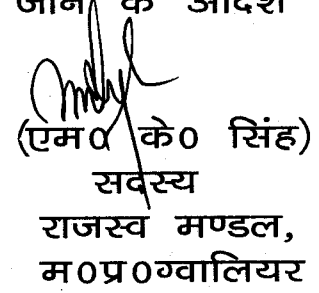 जाने के आदेश
(एम0 के0 सिंह)
सदस्य
राजस्व मण्डल,
म0प्र0ग्वालियर